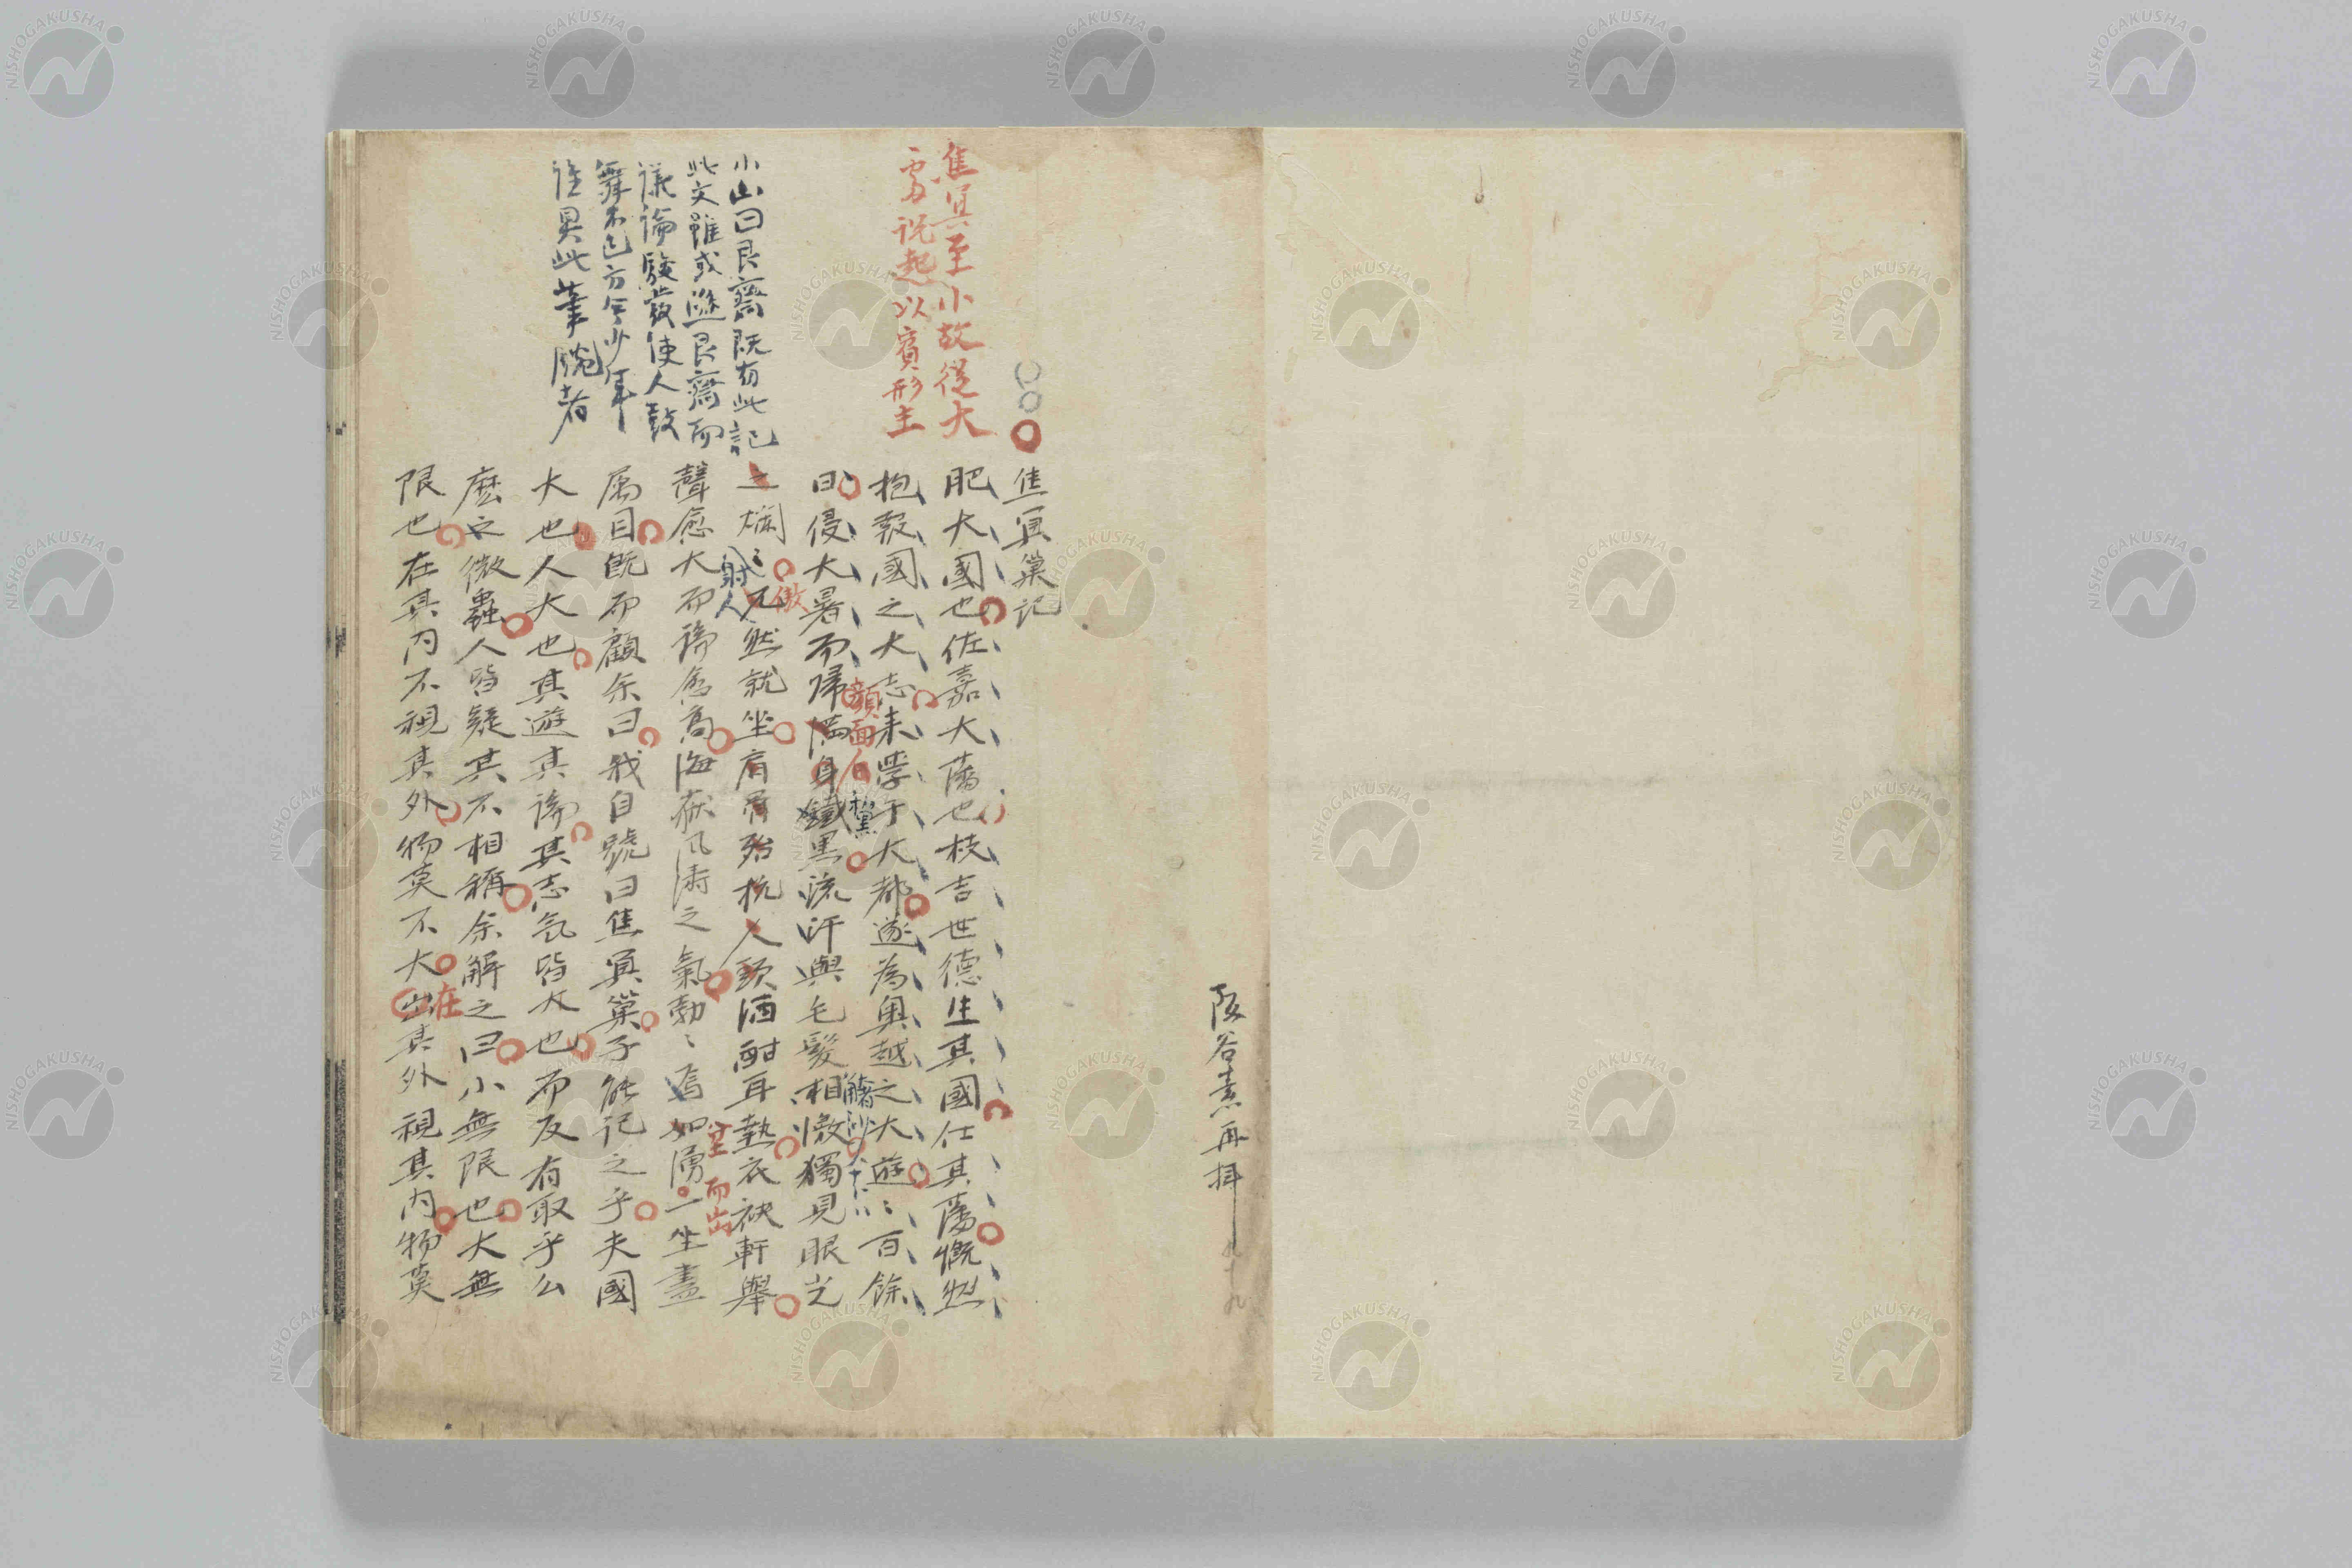 阪谷素再拜
焦冥巢記
肥大國也佐嘉大藩也枝吉世德生其國仕其藩慨然
抱報國之大志来學于大都遂為奥越之大遊〻百餘
日侵大暑而歸満身鐵黒流汗與毛髮相燉獨見眼光
顔面自
黧
上爛〻兀然就坐肩骨殆抗人頭酒酣耳熱衣袂軒舉
射人
傲
聲愈大而論愈高海嶽風濤之氣勃〻焉如湧一坐盡
坌而出
属目既而顧余曰我自號曰焦冥巢子能記之乎夫國
大也人大也其遊其論其志気皆大也而反有取乎么
麼之微蟲人皆疑其不相稱余解之曰小無限也大無
限也在其内不視其外物莫不大出其外視其内物莫
在
焦冥至小故從大
處説起以賓形主
小山曰艮齋既有此記
此文雖或遜艮齋而
議論駿發使人鼓
舞不已方今少年
誰具此筆腕者
NISHOGAKUSHA